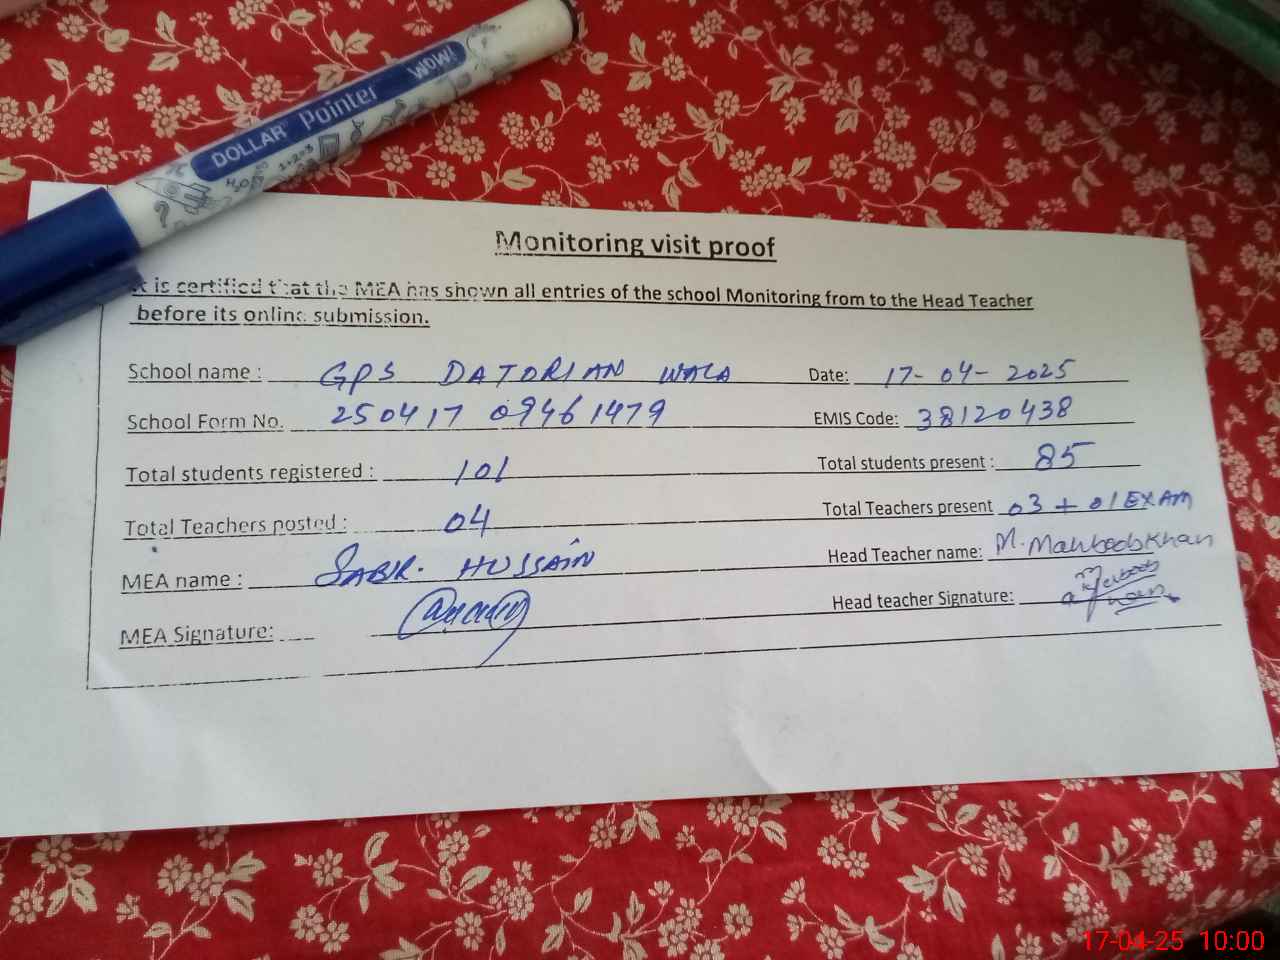 DOLLAR Pointer WOW!
H₂O 1+2=3
?
Monitoring visit proof
It is certified that the MEA has shown all entries of the school Monitoring from to the Head Teacher
before its online submission.
School name : GPS DATORIAN WALA Date: 17-04-2025
School Form No. 250417 09461479 EMIS Code: 38120438
Total students registered : 101 Total students present : 85
Total Teachers posted : 04 Total Teachers present 03 + 01 EXAM
MEA name : SABIR. HUSSAIN Head Teacher name: M. Mahboob Khan
MEA Signature: Head teacher Signature:
17-04-25 10:00